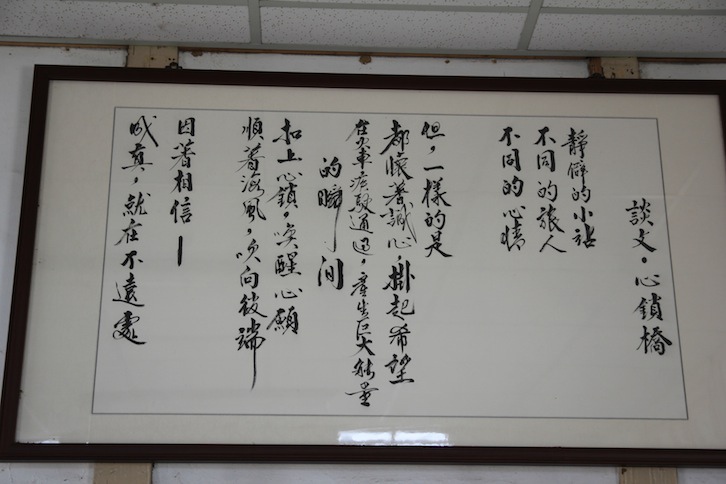 談文，心鎖橋
靜僻的小站
不同的旅人
不同的心情
但，一樣的是
都懷著誠心，掛起希望
在火車疾駛通過，產生巨大能量
的瞬間
扣上心鎖，喚醒心願
順著海風，吹向彼端
因著相信—
成真，就在不遠處